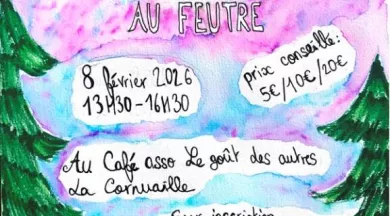 AU FEUTRE
8 février 2026
13H30-16H30
prix conseillé:
5€/10€/20€
Au Café asso Le goût des autres
La Cornuaille